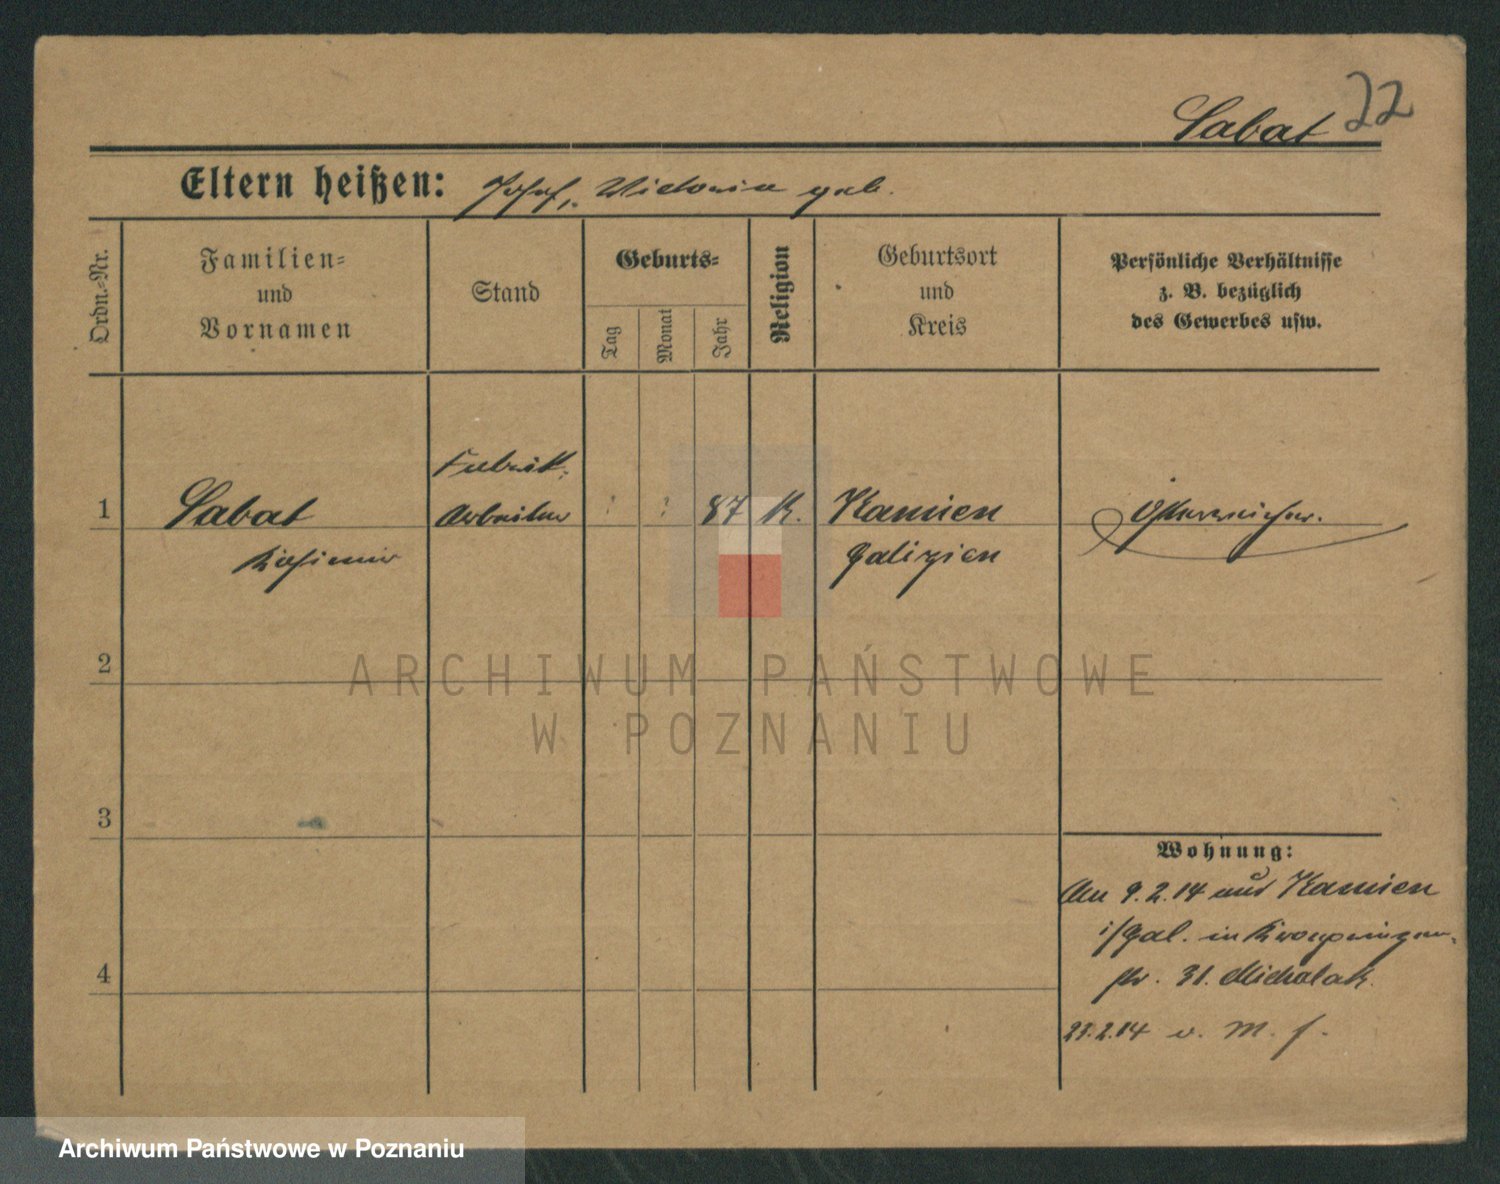 22
Sabat
Eltern heißen: Josef, Victoria geb.
Ordn.-Nr.
Familien-
und
Vornamen
Stand
Geburts-
Tag
Monat
Jahr
Religion
Geburtsort
und
Kreis
Persönliche Verhältnisse
z. B. bezüglich
des Gewerbes usw.
Fabrik-
1 Sabat Arbeiter ? ? 87 K. Kamien Österreicher.
Kasimir Galizien
2
ARCHIWUM PAŃSTWOWE
W POZNANIU
3
Wohnung:
Am 9.2.14 aus Kamien
i/Gal. in Kronprinzen-
4
str. 31. Michalak.
23.2.14 v. M. f.
Archiwum Państwowe w Poznaniu